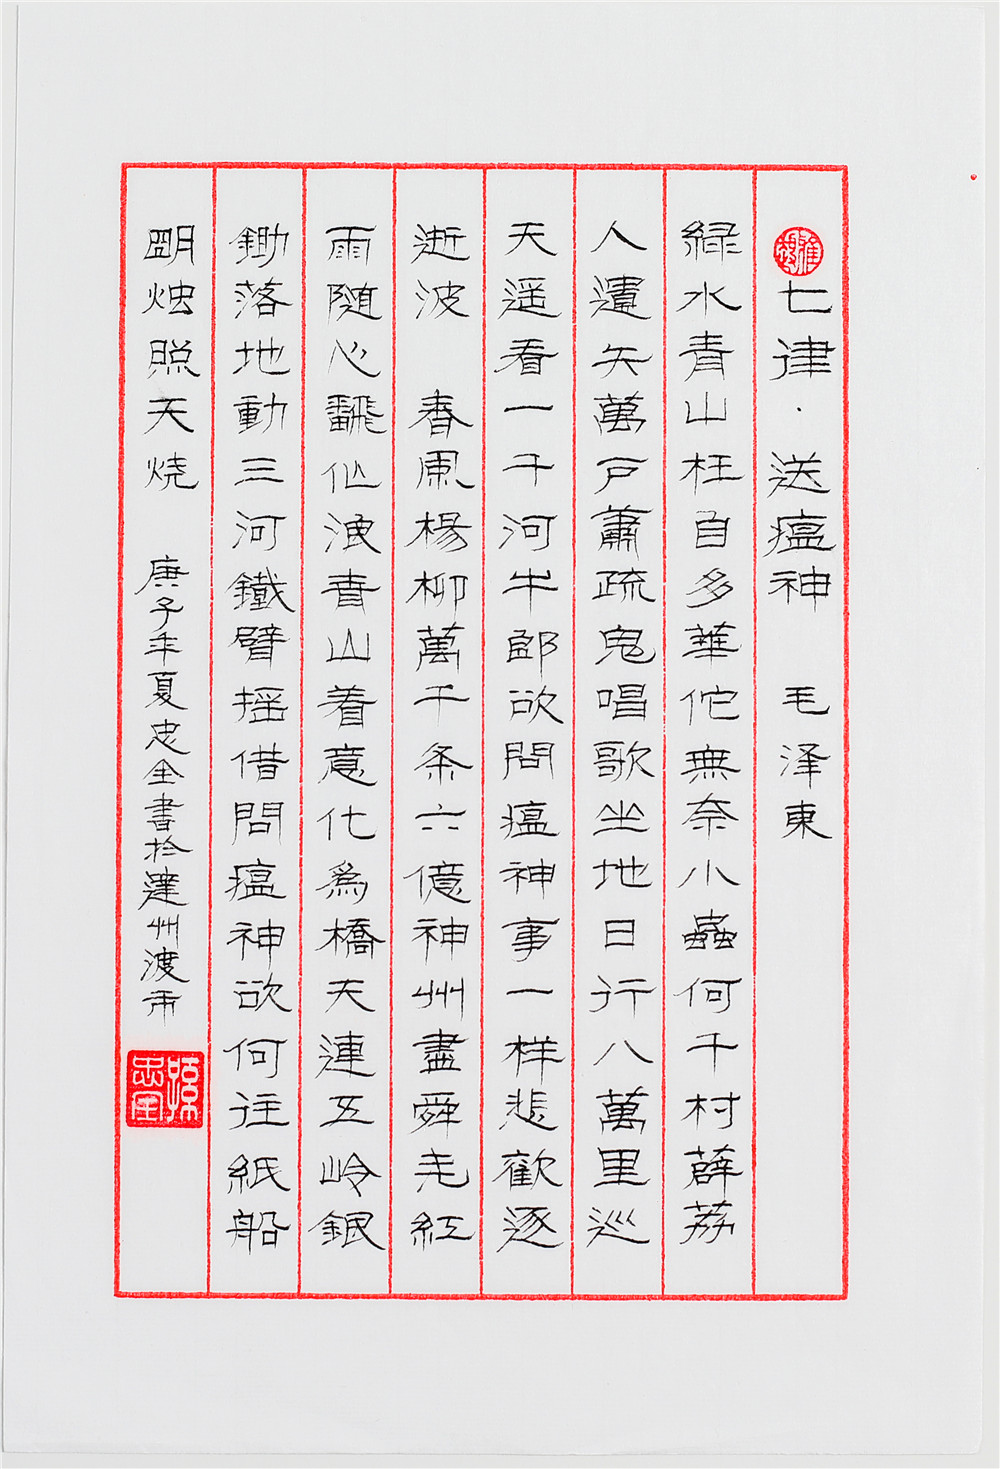 七律·送瘟神 毛泽東
緑水青山枉自多華佗無奈小蟲何千村薜荔
人遺矢萬户蕭疏鬼唱歌坐地日行八萬里巡
天遥看一千河牛郎欲問瘟神事一样悲歡逐
逝波 春風楊柳萬千条六億神州盡舜尧紅
雨随心翻作浪青山着意化為橋天連五岭銀
鋤落地動三河鐵臂摇借問瘟神欲何往紙船
明烛照天烧 庚子年夏忠全書於達州渡市
孫忠全